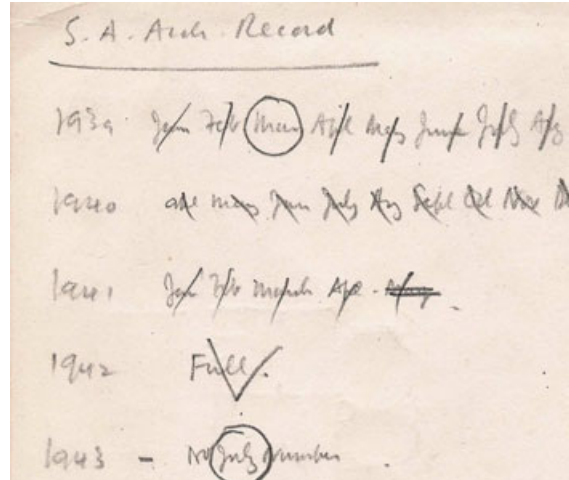 S. A. Arch. Record
1939 Jan Feb Mar Apl May June July Aug
1940 Apl May Jun July Aug Sept Oct Nov D
1941 Jan Feb March Ap. May.
1942 Full.
1943 - No July Number